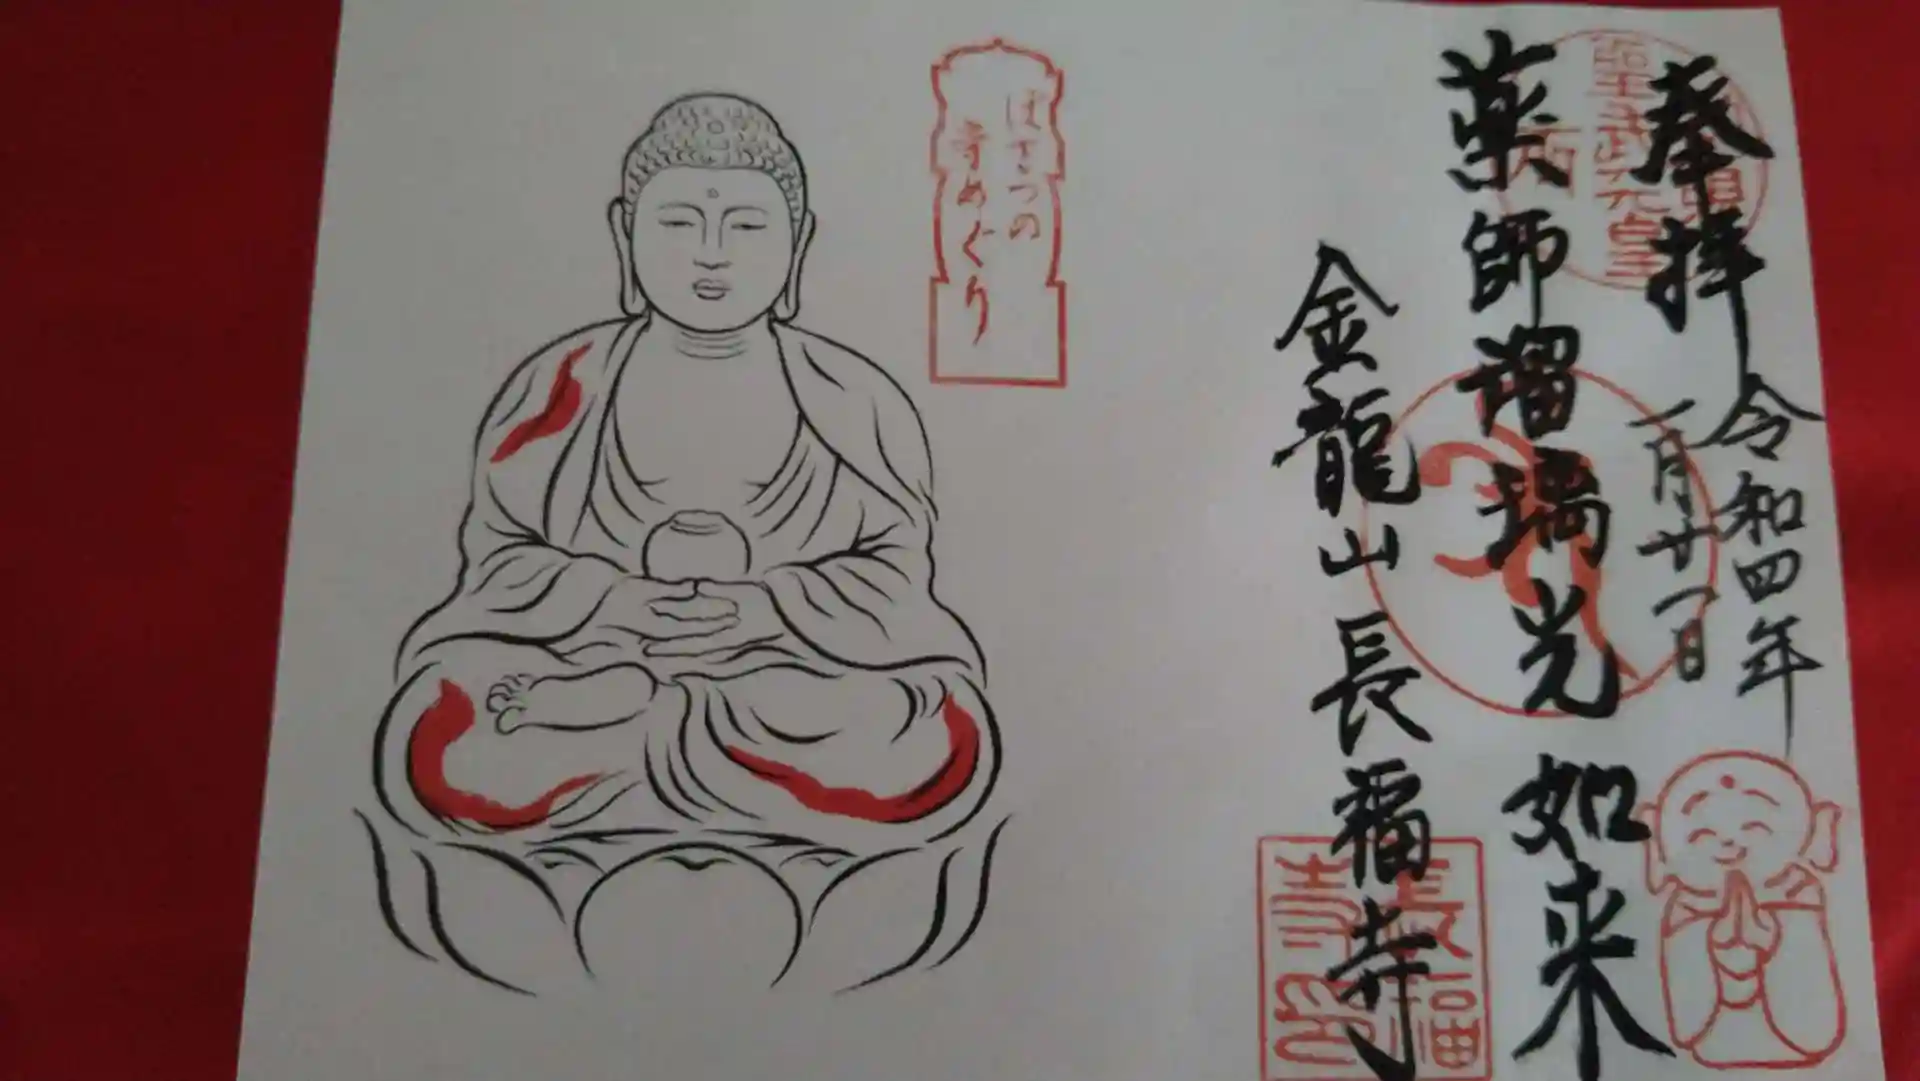 奉拝
令和四年
一月廿一日
聖武天皇
薬師瑠璃光如来
金龍山長福寺
長福
寺印
ぼさつの
寺めぐり